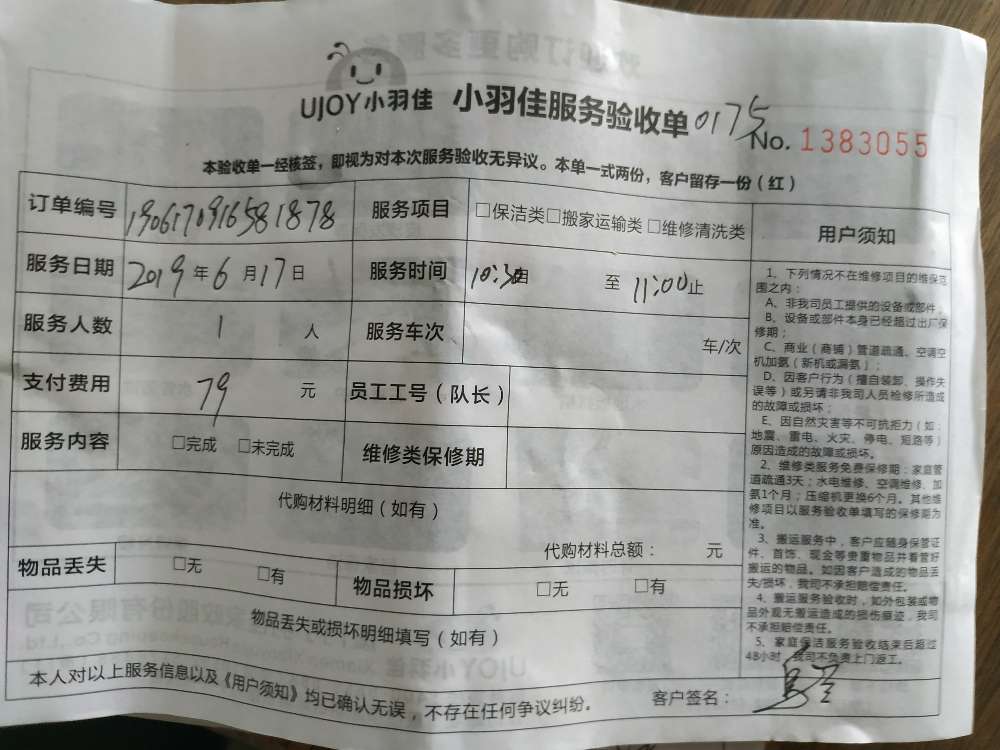 UJOY小羽佳 小羽佳服务验收单 0175
No. 1383055
本验收单一经核签，即视为对本次服务验收无异议。本单一式两份，客户留存一份（红）
订单编号 190617091658 1878 服务项目 □保洁类□搬家运输类□维修清洗类
服务日期 2019年6月17日 服务时间 10:30自 至 11:00止
服务人数 1 人 服务车次 车/次
支付费用 79 元 员工工号（队长）
服务内容 □完成 □未完成 维修类保修期
代购材料明细（如有）
代购材料总额： 元
物品丢失 □无 □有 物品损坏 □无 □有
物品丢失或损坏明细填写（如有）
本人对以上服务信息以及《用户须知》均已确认无误，不存在任何争议纠纷。
客户签名：
用户须知
1、下列情况不在维修项目的维保范
围之内：
A、非我司员工提供的设备或部件；
B、设备或部件本身已经超过出厂保
修期；
C、商业（商铺）管道疏通、空调空
机加氨（新机或漏氨）；
D、因客户行为（擅自装卸、操作失
误等）或另请非我司人员检修所造成
的故障或损坏；
E、因自然灾害等不可抗拒力（如：
地震、雷电、火灾、停电、短路等）
原因造成的故障或损坏。
2、维修类服务免费保修期：家庭管
道疏通3天；水电维修、空调维修、加
氨1个月；压缩机更换6个月。其他维
修项目以服务验收单填写的保修期为
准。
3、搬运服务中，客户应随身保管证
件、首饰、现金等贵重物品并看管好
搬运的物品。如因客户造成的物品丢
失/损坏，我司不承担赔偿责任。
4、搬运服务验收时，如外包装或物
品外观无搬运造成的损伤痕迹，我司
不承担赔偿责任。
5、家庭保洁服务验收结束后超过
48小时，我司不负责上门返工。